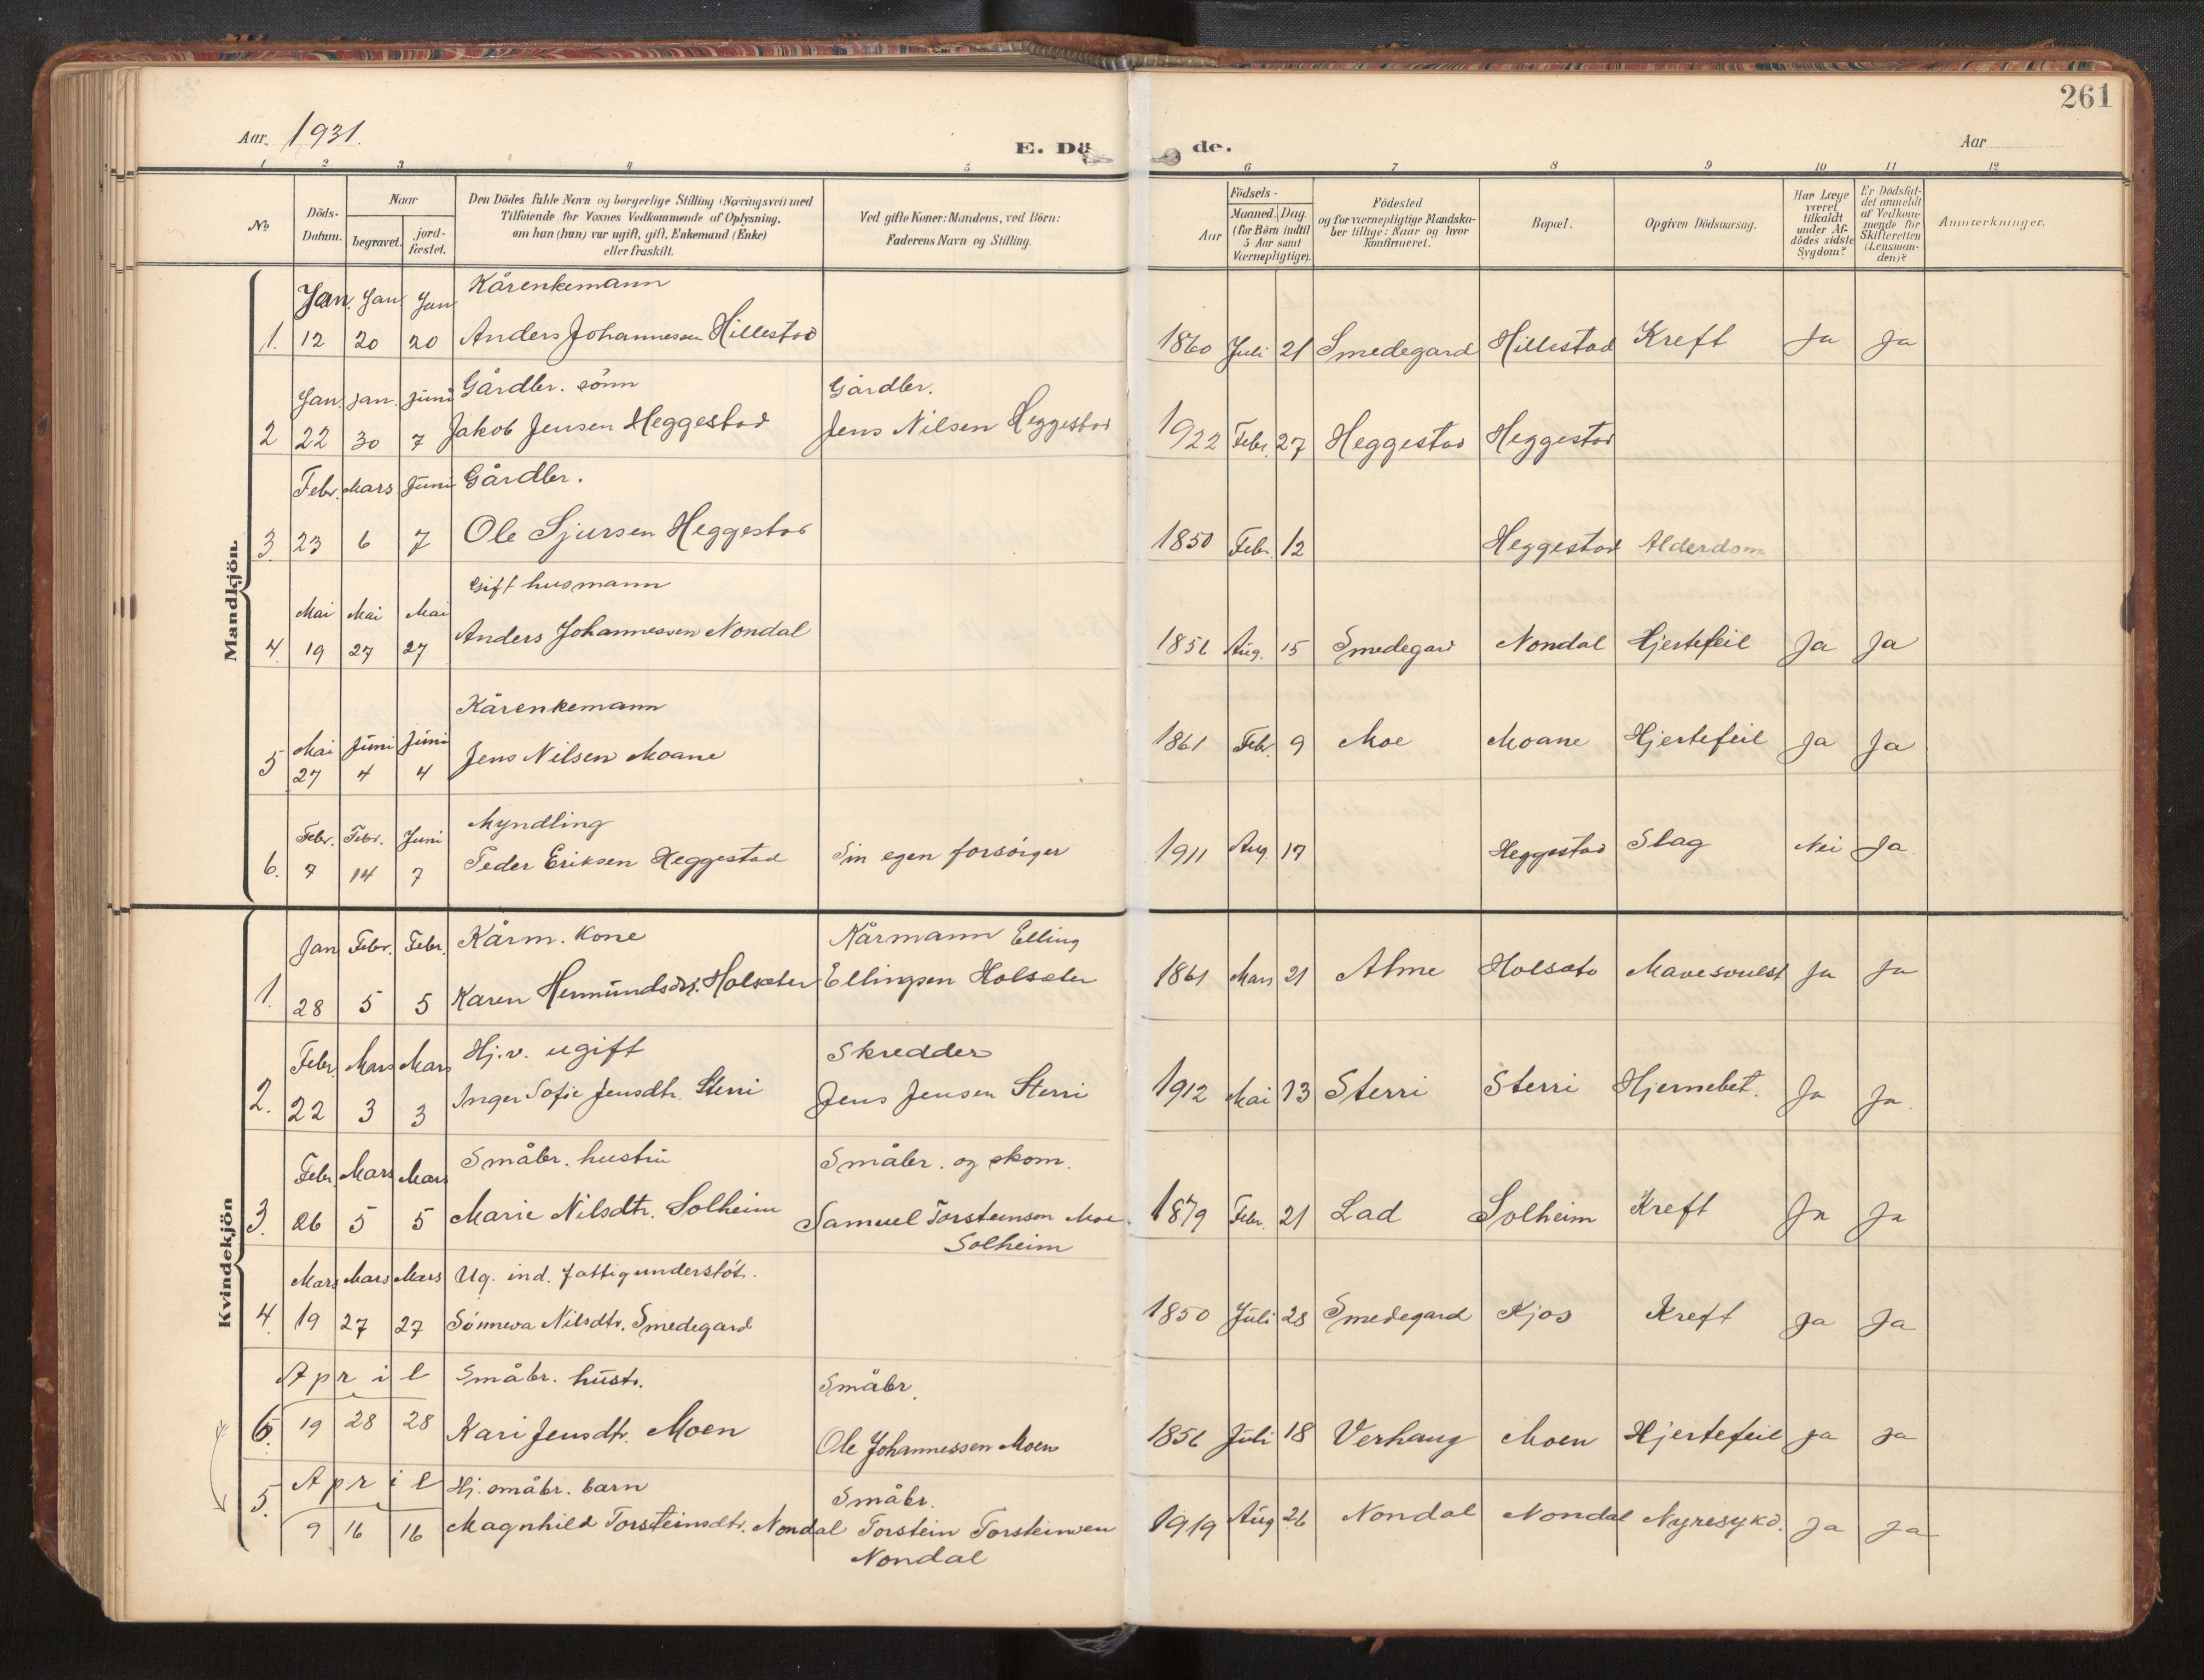 261
Aar. 1931.
E. Dö de.
Aar
1 2 3 4 5 6 7 8 9 10 11 12
No
Döds-Datum.
Naar
begravet.
jord-fæstet.
Den Dödes fulde Navn og borgerlige Stilling (Næringsvei) med
Tilföiende for Voxnes Vedkommende af Oplysning,
om han (hun) var ugift, gift, Enkemand (Enke)
eller fraskilt.
Ved gifte Koner: Mandens, ved Börn:
Faderens Navn og Stilling.
Födsels-
Aar
Maaned. Dag.
(for Börn indtil
5 Aar samt
Værnepligtige).
Födested
og for værnepligtige Mandska-
ber tillige: Naar og hvor
konfirmeret.
Bopæl.
Opgiven Dödsaarsag.
Har Læge
været
tilkaldt
under Af-
dödes sidste
Sygdom?
Er Dödsfal-
det anmeldt
af Vedkom-
mende for
Skifteretten
(Lensman-
den)?
Anmærkninger.
Mandkjön.
Jan. Jan Jan Kårenkemann
1. 12 20 20 Anders Johannessen Hillestad 1860 Juli 21 Smedegard Hillestad Kreft Ja Ja
Jan. Jan. Juni Gårdbr. sönn Gårdbr.
2 22 30 7 Jakob Jensen Heggestad Jens Nilsen Heggestad 1922 Febr. 27 Heggestad Heggestad
Febr. Mars Juni Gårdbr.
3 23 6 7 Ole Sjursen Heggestad 1850 Febr. 12 Heggestad Alderdom
Gift husmann
Mai Mai Mai
4. 19 27 27 Anders Johannessen Nondal 1856 Aug. 15 Smedegard Nondal Hjertefeil Ja Ja
Kårenkemann
Mai Juni Juni
5 27 4 4 Jens Nilsen Moane 1861 Febr. 9 Moe Moane Hjertefeil Ja Ja
Myndling
Febr. Febr. Juni
6. 7 14 7 Peder Eriksen Heggestad Sin egen forsörger 1911 Aug. 17 Heggestad Slag Nei Ja
Kvindekjön
Jan Febr. Febr. Kårm. kone Kårmann Elling
1. 28 5 5 Karen Hermundsdtr. Holsæter Ellingsen Holsæter 1861 Mars 21 Alme Holsæte Mavesvulst Ja Ja
Febr. Mars Mars Hj.v. ugift Skredder
2. 22 3 3 Inger Sofie Jensdtr. Sterri Jens Jensen Sterri 1912 Mai 13 Sterri Sterri Hjernebet. Ja Ja.
Febr. Mars Mars Småbr. hustru Småbr. og skom.
3. 26 5 5 Marie Nilsdtr. Solheim Samuel Torsteinson Moe 1879 Febr. 21 Lad Solheim Kreft Ja Ja
Solheim
Mars Mars Mars Ug. ind. fattigunderstöt.
4. 19 27 27 Sönneva Nilsdtr. Smedegard 1850 Juli 28 Smedegard Kjos Kreft Ja Ja
April Småbr. hustr. Småbr.
6. 19 28 28 Kari Jensdtr. Moen Ole Johannessen Moen 1856 Juli 18 Verhaug Moen Hjertefeil Ja Ja
April Hj. småbr. barn Småbr.
5. 9 16 16 Magnhild Torsteinsdtr. Nondal Torstein Torsteinsen 1919 Aug 26 Nondal Nondal Nyresykd. Ja Ja
Nondal